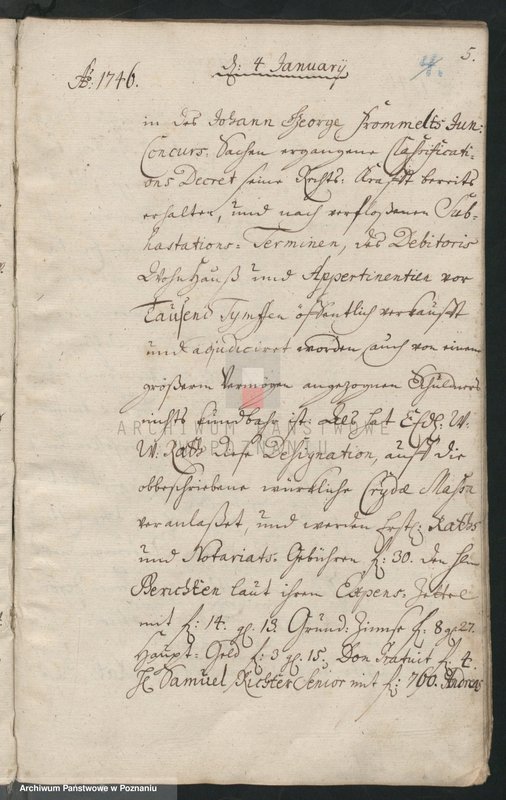 5.
Ao: 1746.
d: 4 January
in des Johann George Frommelts Jun:
Concurs-Sachen ergangene Classificati-
ons Decret seine Rechts-Krafft bereits
erhalten, und nach verfloßenen Sub-
hastations-Terminen, des Debitoris
WohnHauß und Appertinentien vor
Tausend Tymffen öffentlich verkaufft
und adjudiciret worden, auch von einem
größerm Vermögen angezognen Schuldners
nichts kundbahr ist: Als hat W.
W: Rath diese Designation, auff die
obbeschriebene würkliche Crydae Massa
veranlaßet, und werden Raths
und Notariats-Gebühren f: 30. den
Berichten laut ihren Expens-Zettel
mit f: 14. gl. 13. Grund-Zinnse f: 8 gl. 27.
Haupt-Geld f: 3 gl. 15, Don Gratuit f. 4.
H Samuel Richter Senior mit f: 760. Andreas
ARCHIWUM PAŃSTWOWE
W POZNANIU
Archiwum Państwowe w Poznaniu